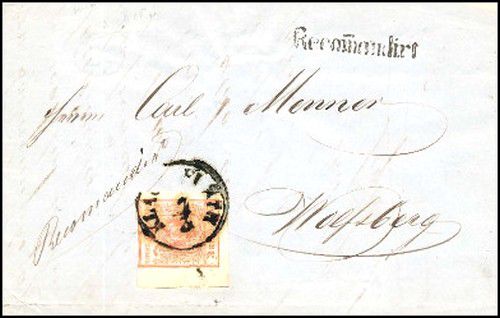 Recom̄andirt
Herrn Carl Menner
Recomandirt
Wolfsberg